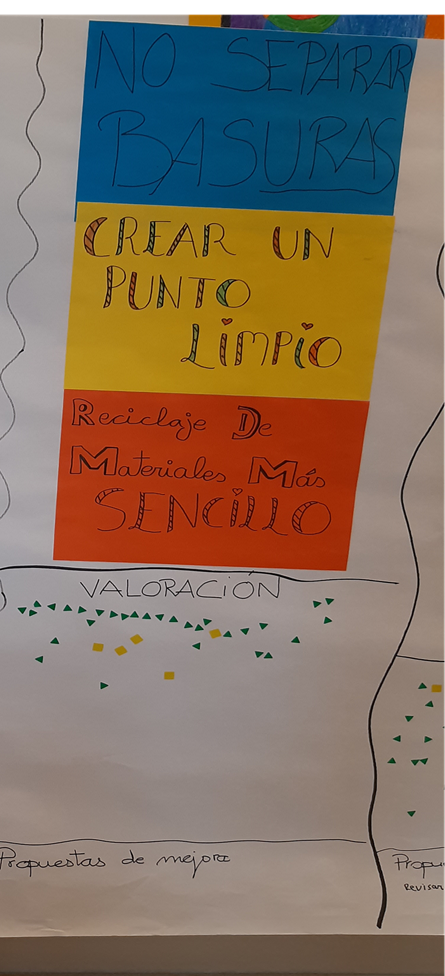 NO SEPARAR
BASURAS
CREAR UN
PUNTO
LIMPIO
Reciclaje De
Materiales Más
SENCILLO
VALORACIÓN
Propuestas de mejora
Revisar